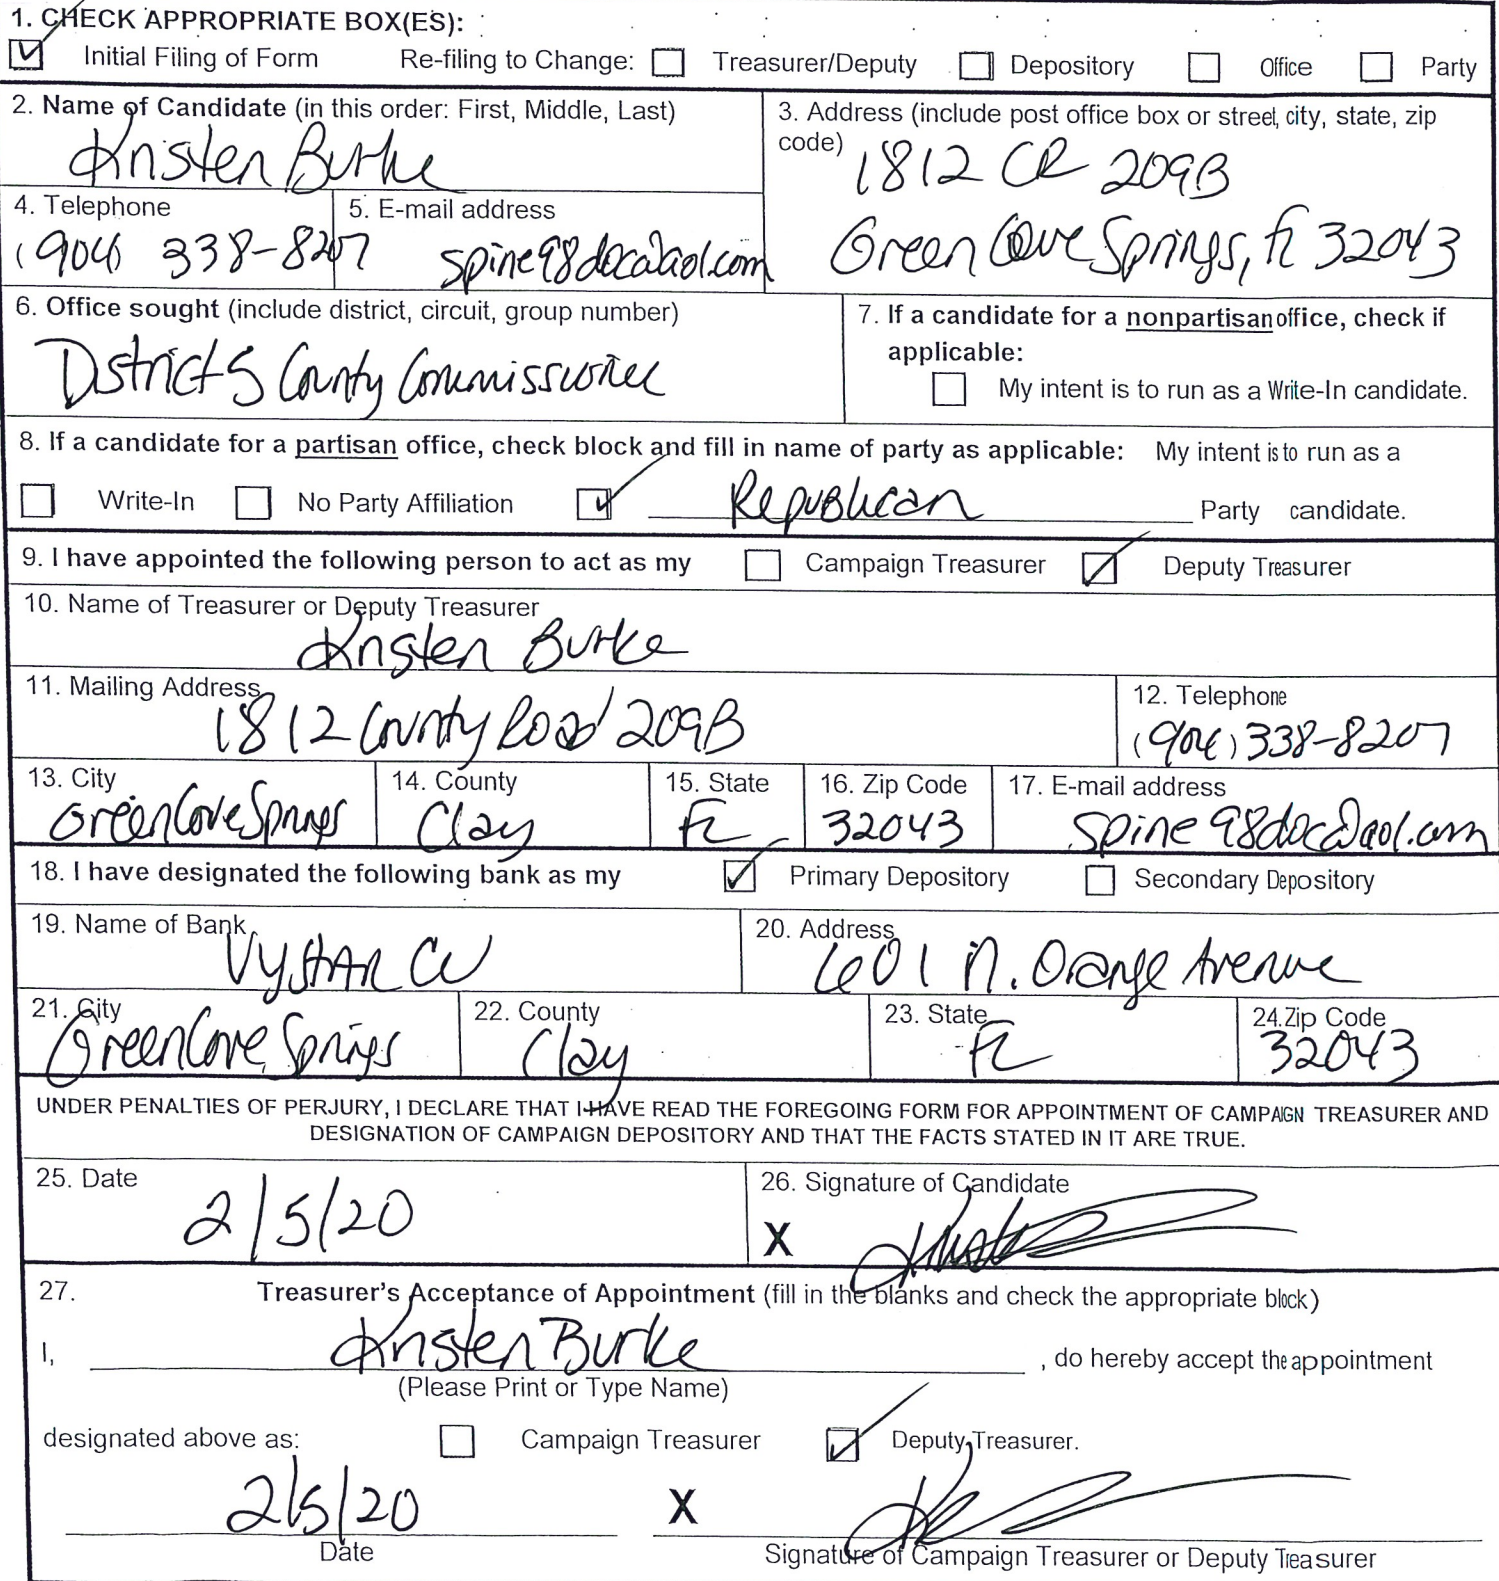 1. CHECK APPROPRIATE BOX(ES):
Initial Filing of Form Re-filing to Change: Treasurer/Deputy Depository Office Party
2. Name of Candidate (in this order: First, Middle, Last)
Kristen Burke
3. Address (include post office box or street, city, state, zip
code)
1812 CR 209B
Green Cove Springs, FL 32043
4. Telephone
(904) 338-8207
5. E-mail address
spine98doc@aol.com
6. Office sought (include district, circuit, group number)
District 5 County Commissioner
7. If a candidate for a nonpartisan office, check if
applicable:
My intent is to run as a Write-In candidate.
8. If a candidate for a partisan office, check block and fill in name of party as applicable: My intent is to run as a
Write-In No Party Affiliation Republican Party candidate.
9. I have appointed the following person to act as my Campaign Treasurer Deputy Treasurer
10. Name of Treasurer or Deputy Treasurer
Kristen Burke
11. Mailing Address
1812 County Road 209B
12. Telephone
(904) 338-8207
13. City
Green Cove Springs
14. County
Clay
15. State
FL
16. Zip Code
32043
17. E-mail address
spine98doc@aol.com
18. I have designated the following bank as my Primary Depository Secondary Depository
19. Name of Bank
VyStar CU
20. Address
601 N. Orange Avenue
21. City
Green Cove Springs
22. County
Clay
23. State
FL
24. Zip Code
32043
UNDER PENALTIES OF PERJURY, I DECLARE THAT I HAVE READ THE FOREGOING FORM FOR APPOINTMENT OF CAMPAIGN TREASURER AND
DESIGNATION OF CAMPAIGN DEPOSITORY AND THAT THE FACTS STATED IN IT ARE TRUE.
25. Date
2/5/20
26. Signature of Candidate
X
27. Treasurer's Acceptance of Appointment (fill in the blanks and check the appropriate block)
I, Kristen Burke , do hereby accept the appointment
(Please Print or Type Name)
designated above as: Campaign Treasurer Deputy Treasurer.
2/5/20 X
Date Signature of Campaign Treasurer or Deputy Treasurer